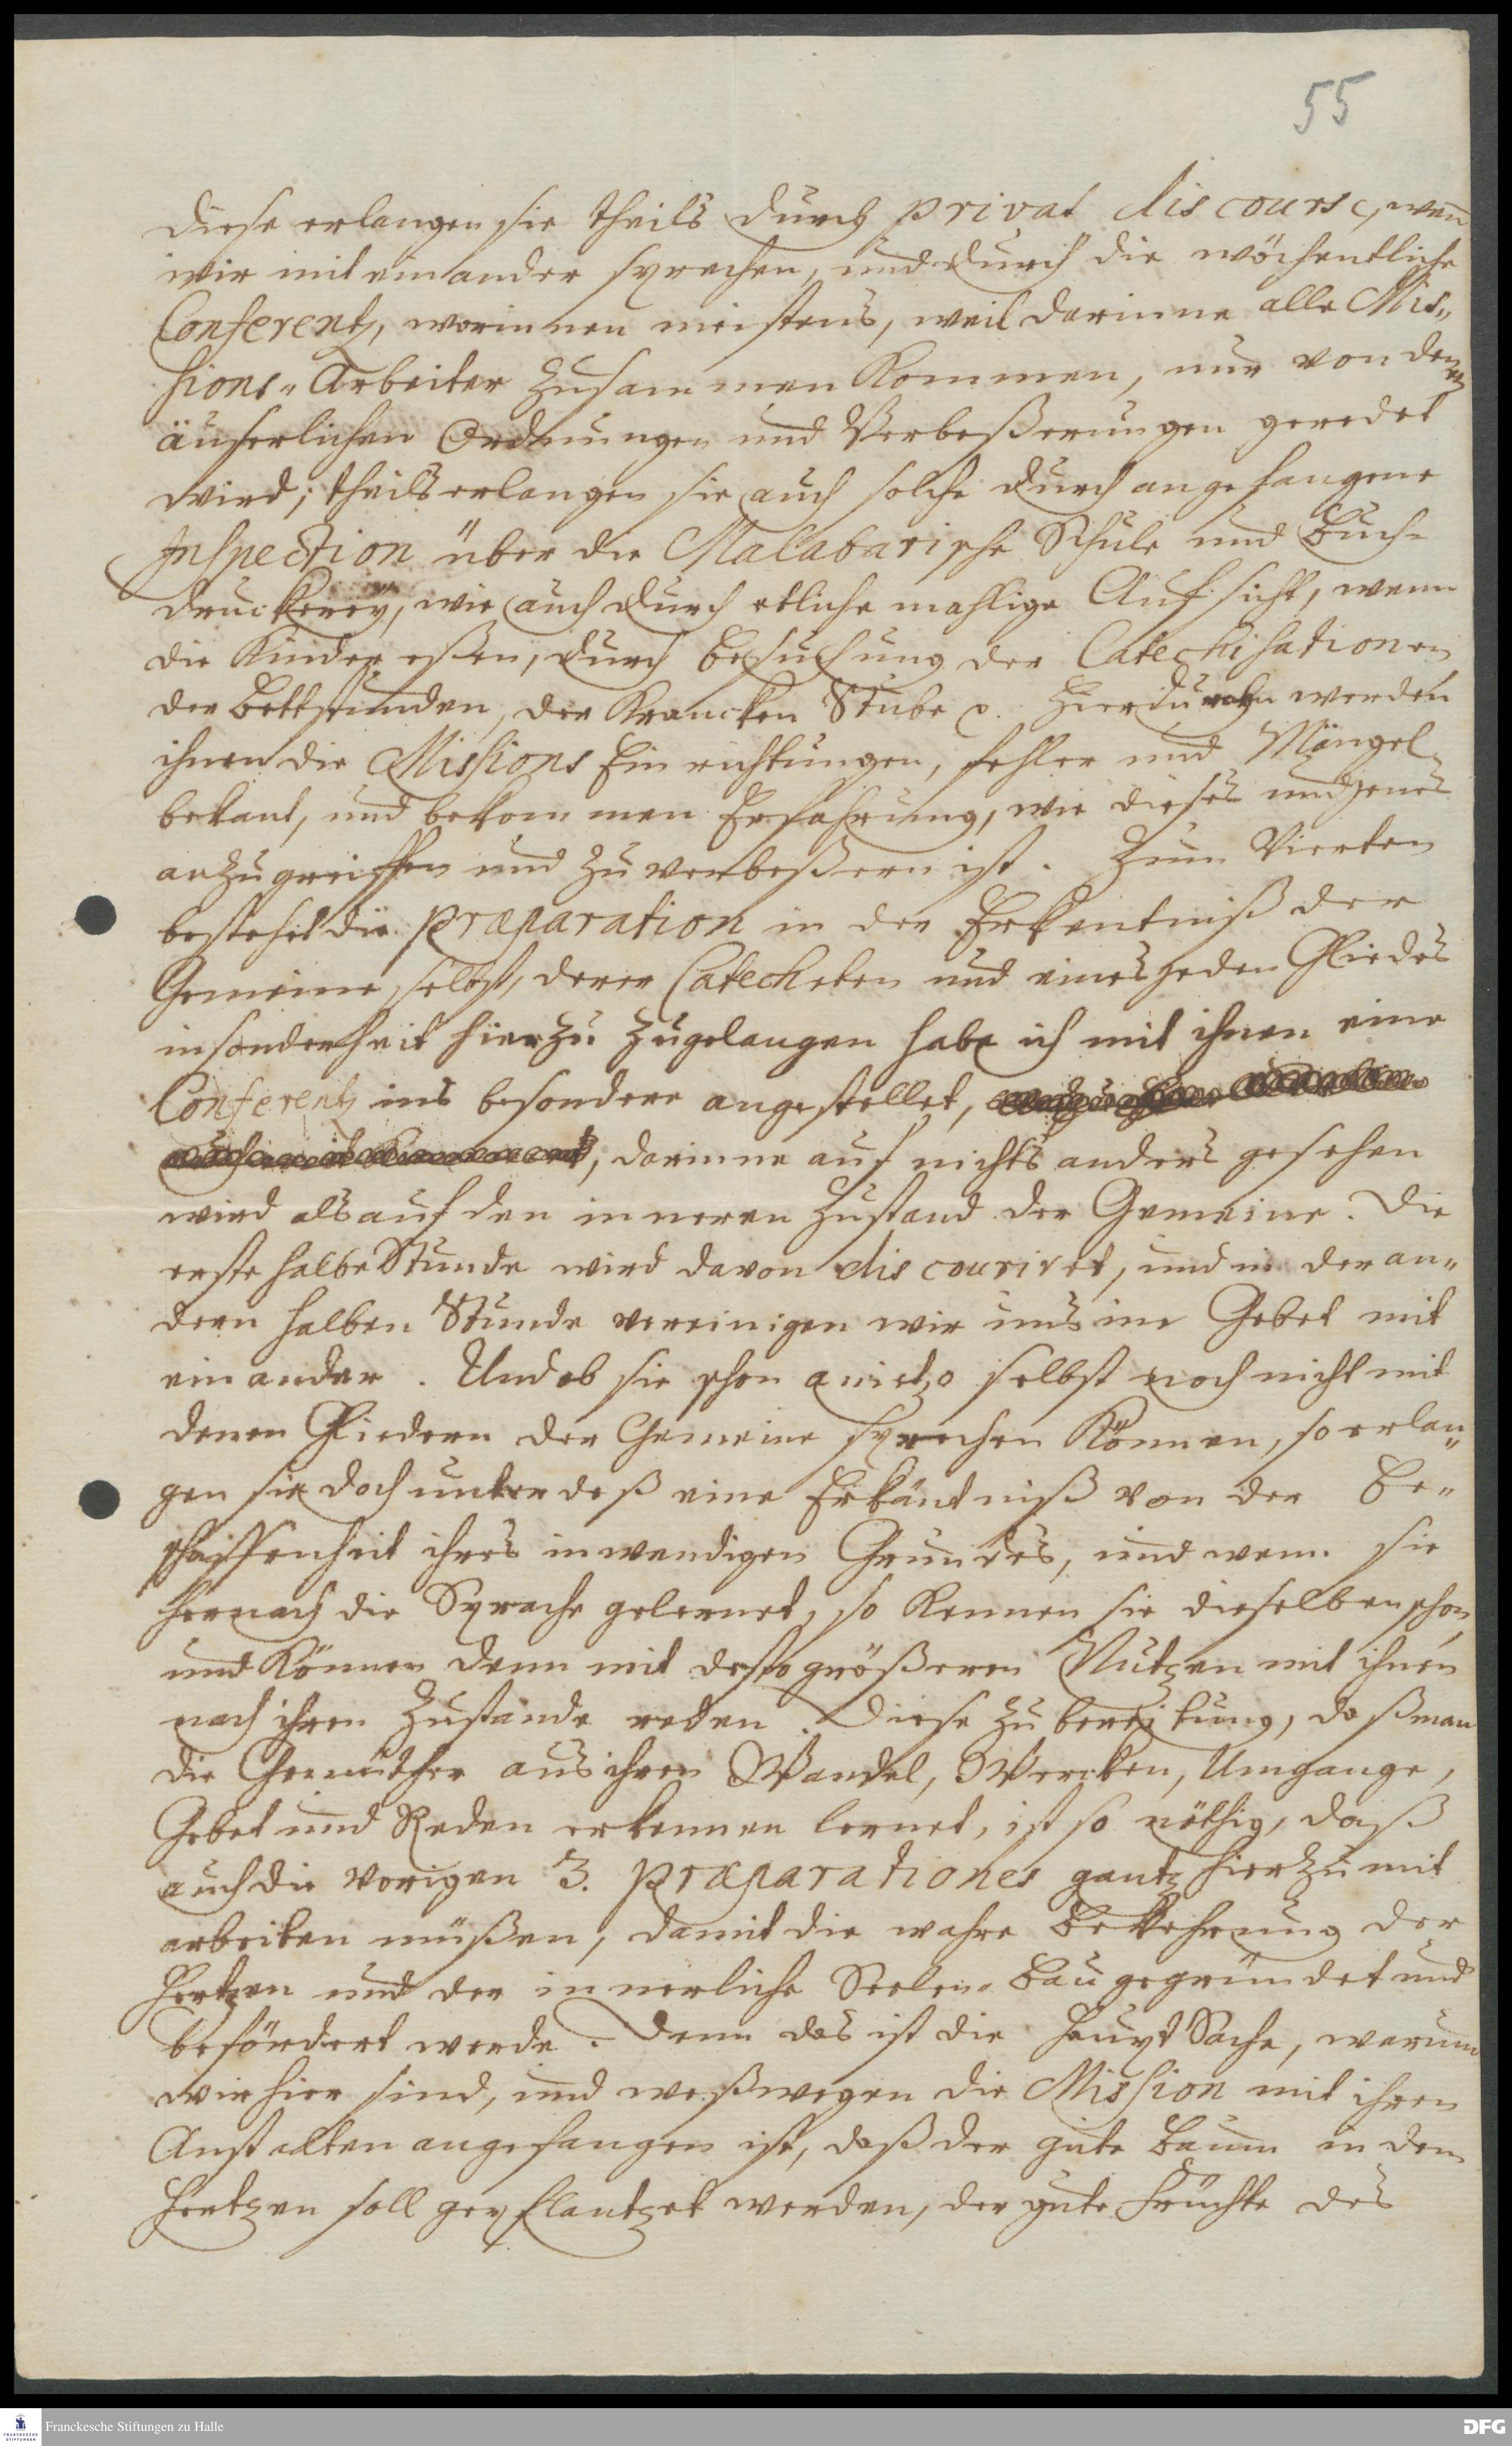 55
diese erlangen sie theils durch privat discourse, wenn
wir mit einander sprechen, und durch die wöchentliche
Conferentz, worinnen meistens, weil darinne alle Mis„
sions„Arbeiter zusammen kommen, nur von denen
äuserlichen Ordnungen und Verbeßerungen geredet
wird; theils erlangen sie auch solche durch angefangene
Inspection über die Malabarische Schule und Buch-
druckerey, wie auch durch etliche mahlige Aufsicht, wenn
die Kinder eßen, durch besuchung der Catechisationen
der bettstunden, der Krancken Stube p. Hierdurch werden
ihnen die Missions Einrichtungen, fehler und Mängel
bekant, und bekommen Erfahrung, wie dieses und jenes
anzugreiffen und zu verbeßern ist. Zum Vierten
bestehet die præparation in der Erkentniß der
Gemeine selbst, derer Catecheten und eines jeden Gliedes
insonderheit hierzu zugelangen habe ich mit ihnen eine
Conferentz ins besondere angestellet,
, darinne auf nichts anders gesehen
wird als auf den inneren Zustand der Gemeine. Die
erste halbe Stunde wird davon discouriret, und in der an„
dern halben Stunde vereinigen wir uns im Gebet mit
einander. Und ob sie schon anietzo selbst noch nicht mit
denen Gliedern der Gemeine sprechen können, so erlan„
gen sie doch unterdeß eine Erkäntniß von der Be„
schaffenheit ihres inwendigen Grundes, und wenn sie
hernach die Sprache gelernet, so kennen sie dieselben schon
und können denn mit desto größerem Nutzen mit ihnen
nach ihren Zustande reden. Diese Zubereitung, daß man
die Gemüther aus ihren Wandel, Wercken, Umgange,
Gebet und Reden erkennen lernet, ist so nöthig, daß
auch die vorigen 3. præparationes gantz hierzu mit
arbeiten müßen, damit die wahre Bekehrung der
Hertzen und der innerliche Seelen„Bau gegründet und
befördert werde. Denn das ist die Haupt Sache, warum
wir hier sind, und weßwegen die Mission mit ihren
Anstalten angefangen ist, daß der gute Baum in dem
Hertzen soll gepflantzet werden, der gute Früchte des
Franckesche Stiftungen zu Halle
DFG